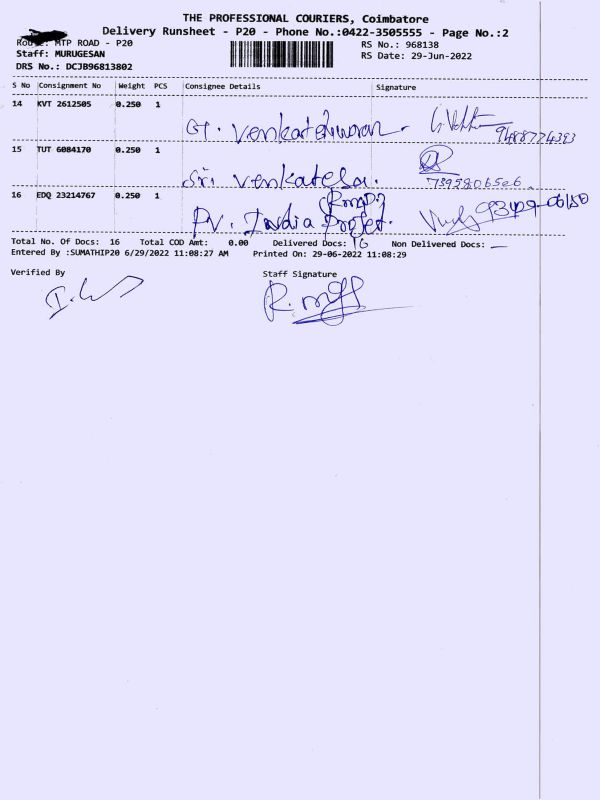 THE PROFESSIONAL COURIERS, Coimbatore
Delivery Runsheet - P20 - Phone No.:0422-3505555 - Page No.:2
Route: MTP ROAD - P20
RS No.: 968138
Staff: MURUGESAN
RS Date: 29-Jun-2022
DRS No.: DCJB96813802
S No Consignment No Weight PCS Consignee Details Signature
14 KVT 2612505 0.250 1
G. Venkateshwaran. 9488774393
15 TUT 6084170 0.250 1
Sri Venkatesa.
16 EDQ 23214767 0.250 1
PV. India Projet.
Total No. Of Docs: 16 Total COD Amt: 0.00 Delivered Docs: 16 Non Delivered Docs: —
Entered By :SUMATHIP20 6/29/2022 11:08:27 AM Printed On: 29-06-2022 11:08:29
Verified By Staff Signature